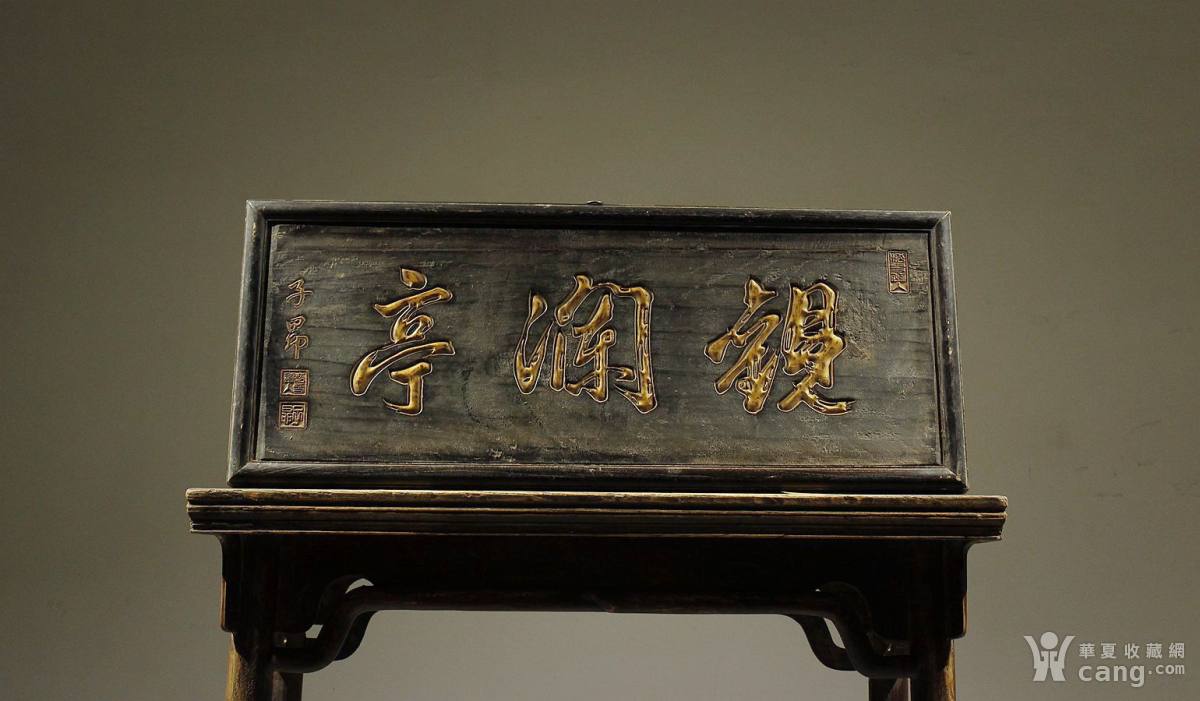 觀瀾亭
子昂
華夏收藏網
cang.com